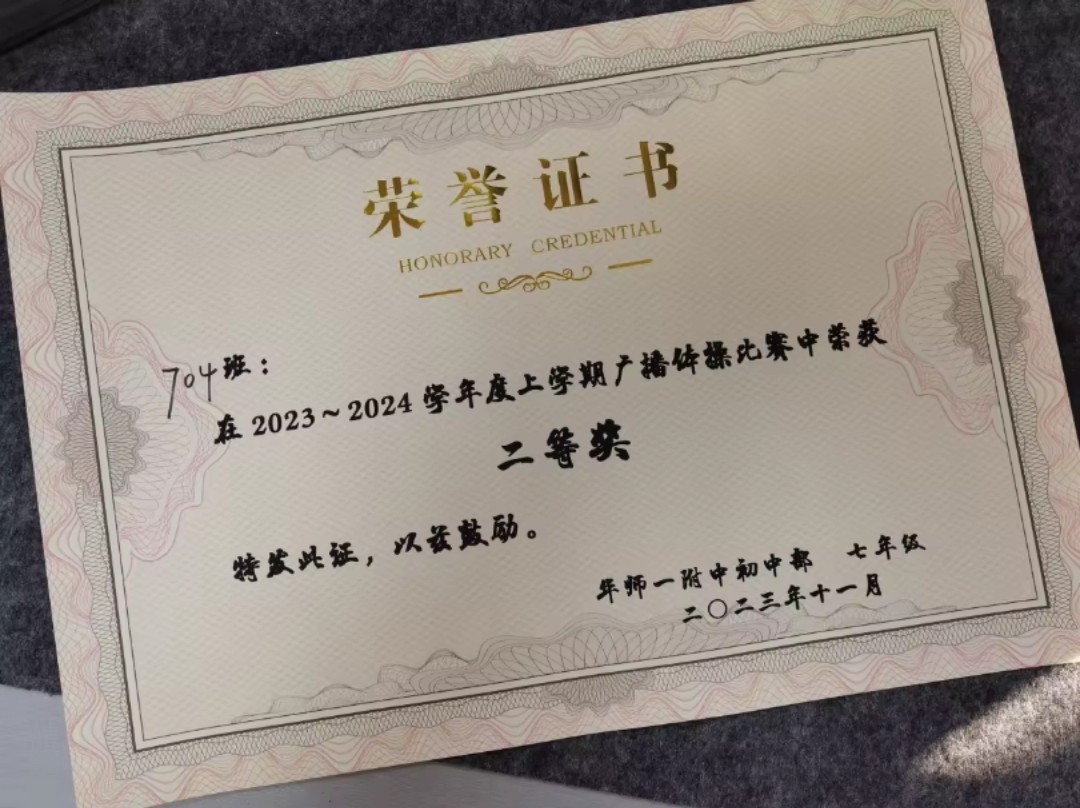 荣誉证书
HONORARY CREDENTIAL
704班：
在2023～2024学年度上学期广播体操比赛中荣获
二等奖
特发此证，以兹鼓励。
华师一附中初中部 七年级
二〇二三年十一月